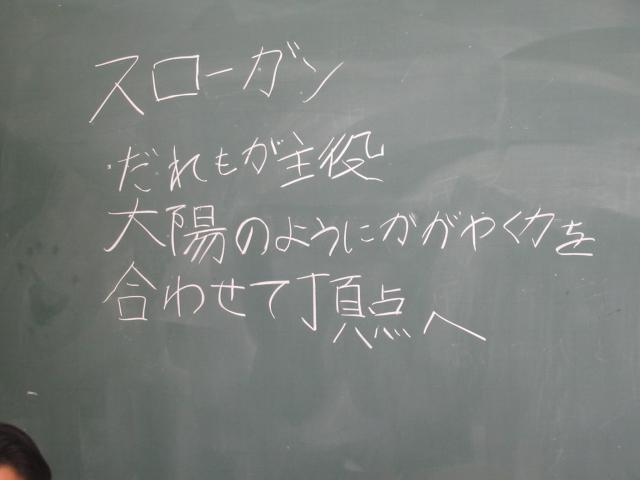 スローガン
・だれもが主役
太陽のようにかがやく力を
合わせて頂点へ